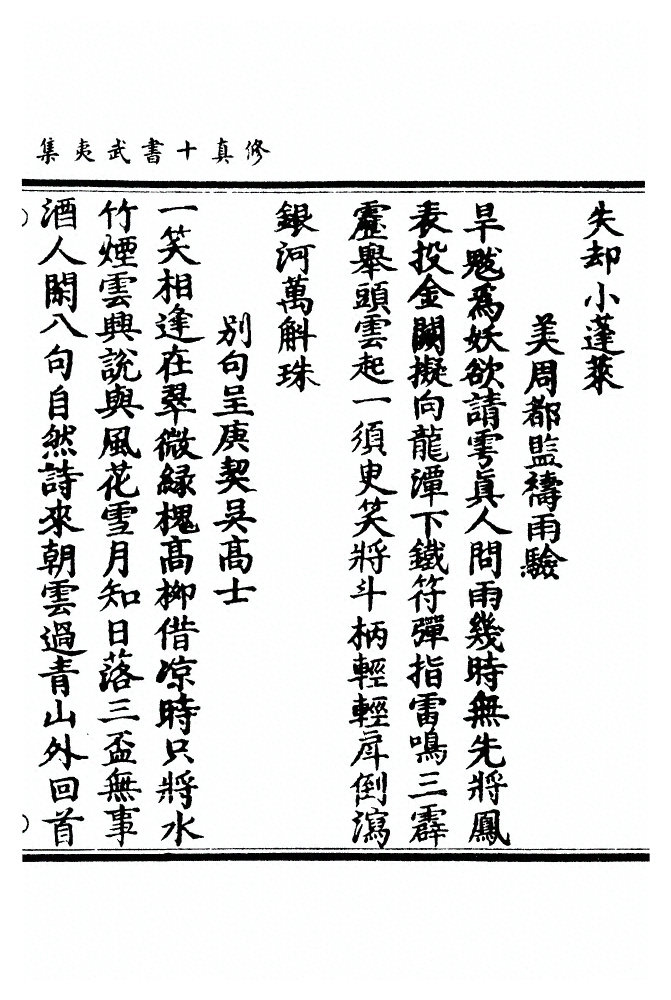 修真十書武夷集
失却小蓬萊
美周都監禱雨驗
旱魃為妖欲請雩真人問雨幾時無先將鳳
表投金闕擬向龍潭下鐵符彈指雷鳴三霹
靂舉頭雲起一須臾笑將斗柄輕輕戽倒瀉
銀河萬斛珠
別句呈庚契吳高士
一笑相逢在翠微綠槐高柳借凉時只將水
竹煙雲興說與風花雪月知日落三盃無事
酒人閑八句自然詩來朝雲過青山外回首